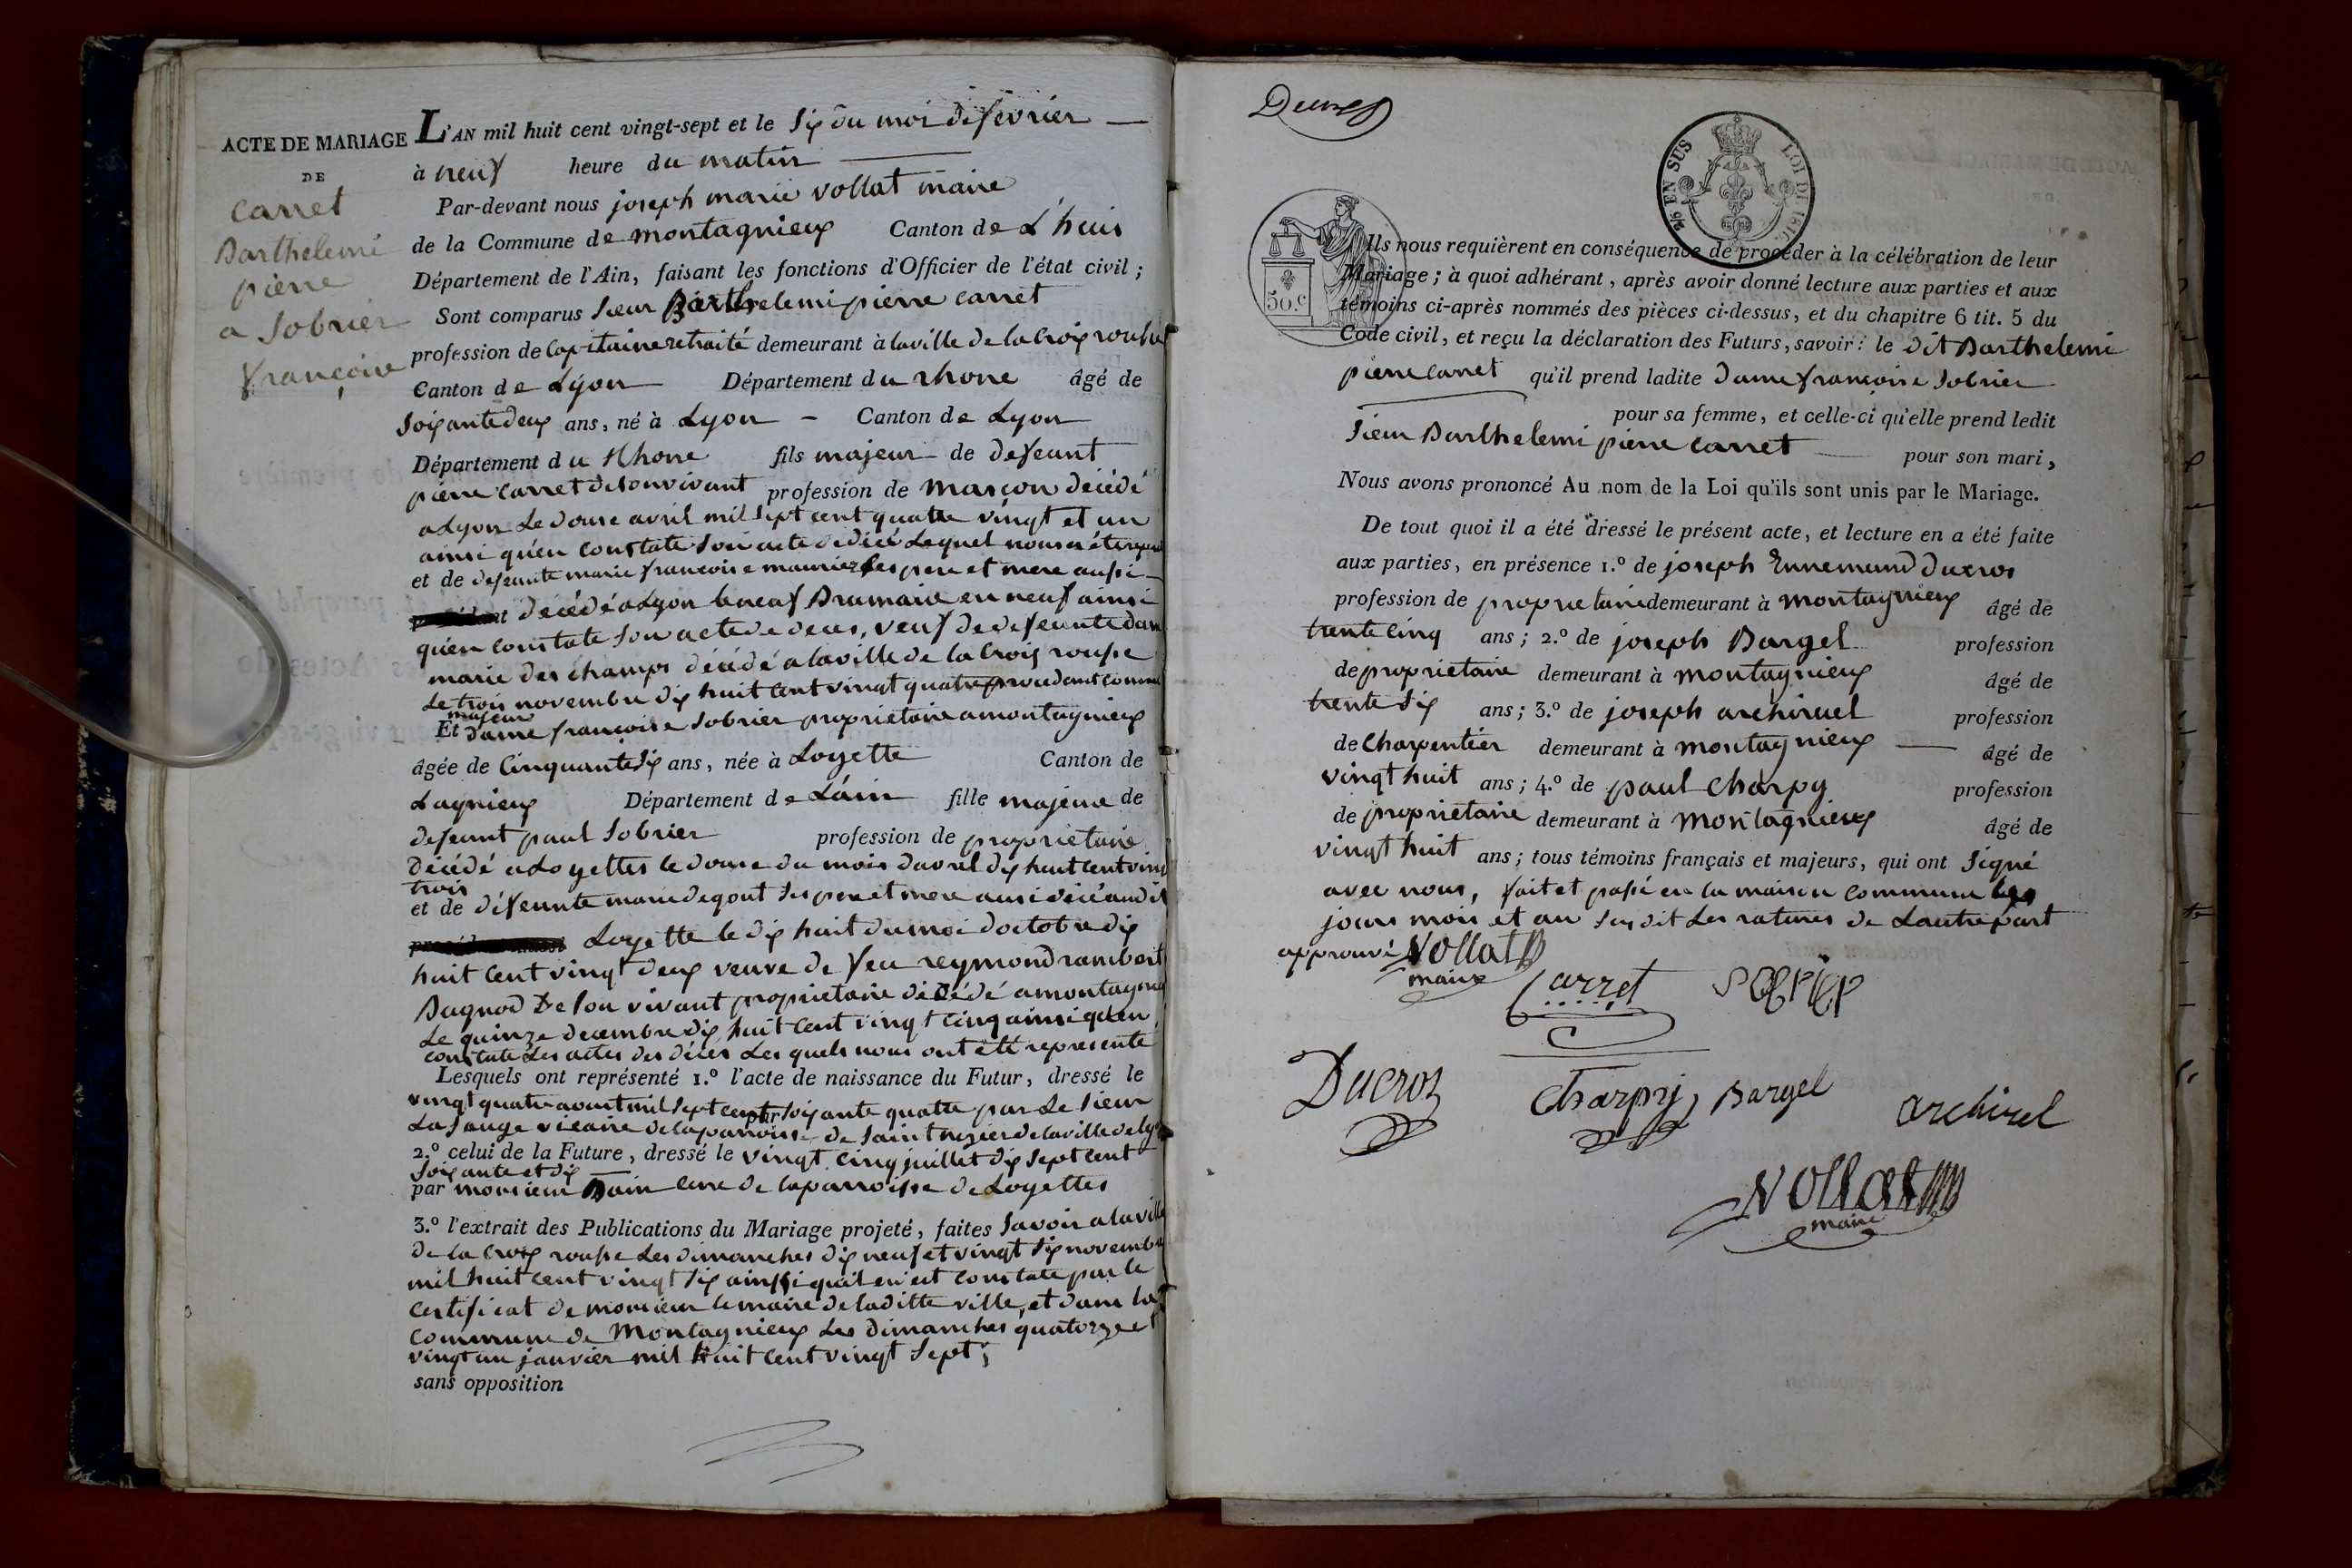 ACTE DE MARIAGE
DE
Carret
Barthelemi
pierre
a Sobrier
françoise
L'AN mil huit cent vingt-sept et le six du moi de février
à neuf heure du matin
Par-devant nous joseph marie vollat maire
de la Commune de montagnieux Canton de L'huis
Département de l'Ain, faisant les fonctions d'Officier de l'état civil ;
Sont comparus sieur Barthelemi pierre carret
profession de Capitaine retraité demeurant à la ville de la Croix rousse
Canton de Lÿon Département du rhone âgé de
soixante deux ans, né à Lyon Canton de Lyon
Département du Rhone fils majeur de defeunt
pierre Carret de son vivant profession de masçon décédé
a Lyon Le douse avril mil sept cent quatre vingt et un
ainsi qu'en constate son acte de décé Lequel nous a été
et de defeunte marie francoise maunier ses pere et mere aussi
décédé a Lyon le neuf Brumaire en neuf ainsi
qu'en constate son acte de deces, veuf de defeunte dame
marie des champs décédé a la ville de la Croix rousse
Le trois novembre dix huit cent vingt quatre procedant comme
majeur
Et dame francoise Sobrier proprietaire a montagnieux
âgée de Cinquante six ans, née à Loyette Canton de
Lagnieux Département de L'ain fille majeure de
defeunt paul Sobrier profession de proprietaire
Décédé a Loyettes le douse du mois davril dix huit cent vingt
trois
et de défeunte marie degout ses pere et mere aussi décé audit
Loyette le dix huit du moi doctobre dix
huit Cent vingt deux veuve de feu reymond rambert
Bagnod De son vivant proprietaire décédé a montagnieux
Le quinze decembre dix huit cent vingt cinq ainsi qu'en
constate Les actes des déces Les quels nous ont été representé
Lesquels ont représenté 1.º l'acte de naissance du Futur, dressé le
vingt quatre aout mil sept cent soixante quatre par Le sieur
La sauge vicaire de la parroisse de saint nizier de la ville de Lyon
2.º celui de la Future, dressé le vingt cinq juillet dix sept cent
soixante et dix
par monsieur Bain Cure de la parroisse de Loyettes
3.º l'extrait des Publications du Mariage projeté, faites savoir a la ville
de la Croix rousse Les dimanches dix neuf et vingt six novembre
mil huit cent vingt six ainssi quil en est constate par le
Certificat de monsieur le maire de laditte ville, et dans la
Commune de Montagnieux Les Dimanches quatorze et
vingt un janvier mil huit Cent vingt sept ;
sans opposition
Ducros
2/6 EN SUS LOI DE 1816
50.c
Ils nous requièrent en conséquence de procéder à la célébration de leur
Mariage ; à quoi adhérant, après avoir donné lecture aux parties et aux
témoins ci-après nommés des pièces ci-dessus, et du chapitre 6 tit. 5 du
Code civil, et reçu la déclaration des Futurs, savoir : le dit Barthelemi
pierre Carret qu'il prend ladite dame françoise Sobrier
pour sa femme, et celle-ci qu'elle prend ledit
sieur Barthelemi pierre carret pour son mari,
Nous avons prononcé Au nom de la Loi qu'ils sont unis par le Mariage.
De tout quoi il a été dressé le présent acte, et lecture en a été faite
aux parties, en présence 1.º de joseph Ennemund Ducros
profession de proprietaire demeurant à montagnieux âgé de
trente cinq ans ; 2.º de joseph Bargel profession
de proprietaire demeurant à montagnieux âgé de
trente six ans ; 3.º de joseph archiruel profession
de Charpentier demeurant à montagnieux âgé de
vingt huit ans ; 4.º de paul Charpy profession
de proprietaire demeurant à Montagnieux âgé de
vingt huit ans ; tous témoins français et majeurs, qui ont signé
avec nous, fait et passé en la maison commune les
jours mois et an susdit Les ratures de Lautre part
approuvé Vollat
maire
Carret
Ducros
Charpy
Bargel
archirel
Vollat
maire